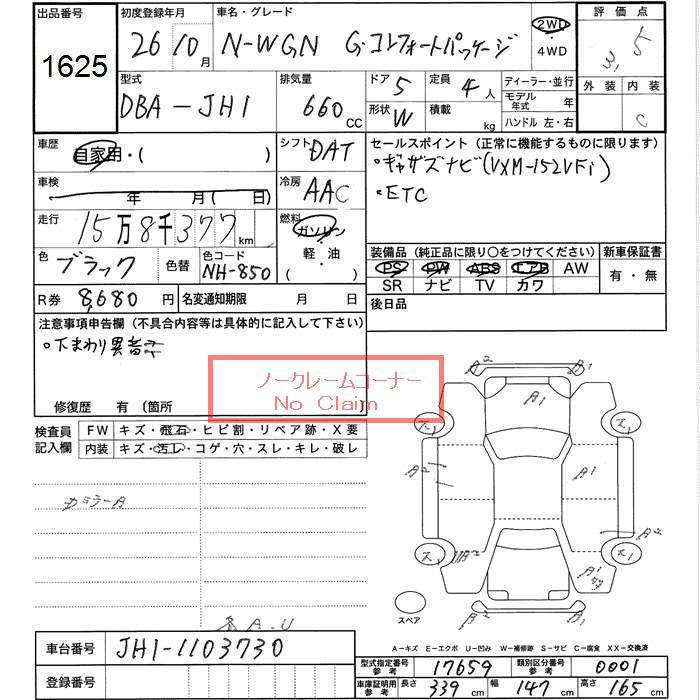 出品番号
1625
初度登録年月
26 10月
車名・グレード
N-WGN G・コンフォートパッケージ
2WD
・
4WD
評価点
外装 内装
C
型式
DBA-JH1
排気量
660 CC
ドア 5
定員 4人
形状 W
積載 kg
ディーラー・並行
モデル年式 年
ハンドル 左・右
車歴
自家用・( )
シフト DAT
車検
年 月(日)
冷房 AAC
走行
15万8千377km
燃料
ガソリン
・
軽・油
( )
色
ブラック
色替
色コード
NH-850
R券 8,680円
名変通知期限 月 日
セールスポイント(正常に機能するものに限ります)
・ギャザズナビ(VXM-152VFi)
・ETC
装備品(純正品に限り〇をつけてください)
新車保証書
PS PW ABS エアB AW
SR ナビ TV カワ
有・無
後日品
注意事項申告欄(不具合内容等は具体的に記入して下さい)
・下まわり異音
ノークレームコーナー
No Claim
修復歴 有 〔箇所 〕
検査員
記入欄
FW キズ・飛石・ヒビ割・リペア跡・X要
内装 キズ・汚レ・コゲ・穴・スレ・キレ・破レ
A2 A1
A1
A2 A1
A2
A2 A1
スペア
A2 A1
A-キズ E-エクボ U-凹み W-補修跡 S-サビ C-腐食 XX-交換済
車台番号 JH1-1103730
登録番号
型式指定番号 参考 17659
類別区分番号 参考 0001
車庫証明用 参考 長さ 339cm 幅 147cm 高さ 165cm